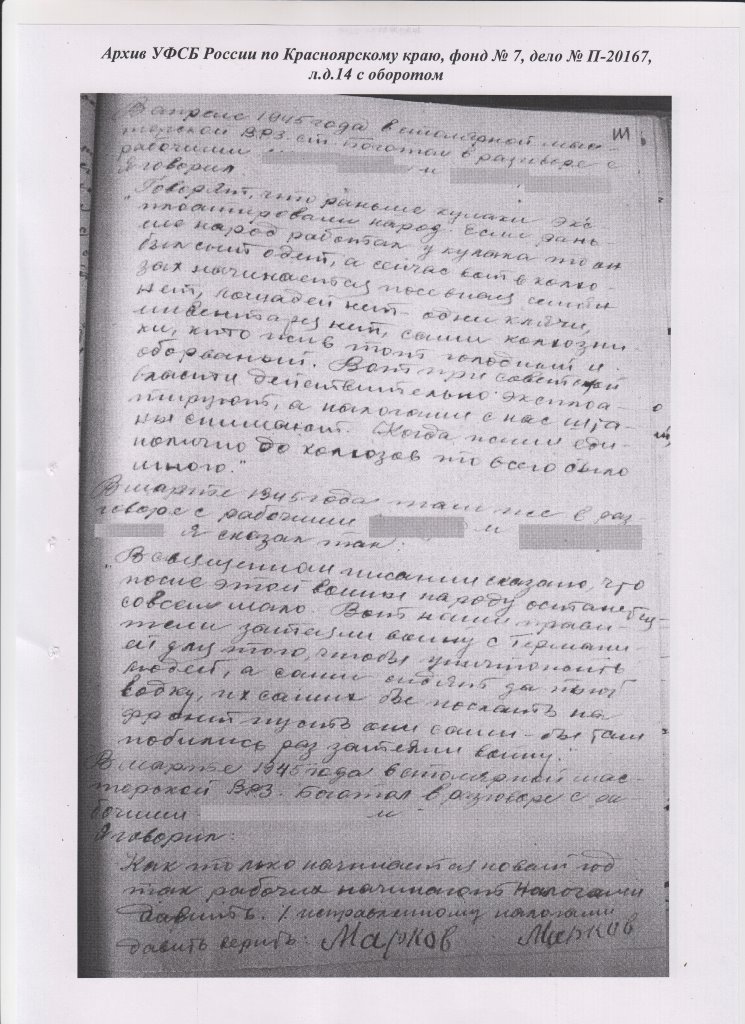 Архив УФСБ России по Красноярскому краю, фонд № 7, дело № П-20167,
л.д.14 с оборотом
В апреле 1945 года в столярной мас-
терской ВРЗ ст. Боготол в разговоре с
рабочими и
Я говорил
"Говорят, что раньше кулаки экс-
плоатировали народ. Если рань-
ше народ работал у кулака то он
был сыт одет, а сейчас вот в колхо-
зах начинается посевная семян
нет, лошадей нет - одни клячи,
инвентаря нет, сами колхозни-
ки, кто жив тот голодный и
оборваный. Вот при советской
власти действительно эксплоа
тируют, а налогами с нас шта-
ны снимают. Когда жили еди-
нолично до колхозов то всего было
много."
В марте 1945 года там же в раз
говоре с рабочими и
Я сказал так:
"В священном писании сказано, что
после этой войны народу останется
совсем мало. Вот наши прави-
тели затеяли войну с Германи-
ей для того, чтобы уничтожить
людей, а сами сидят да пьют
водку, их самих бы послать на
фронт пусть они сами бы там
побились раз затеяли войну."
В марте 1945 года в столярной мас-
терской ВРЗ. Боготол в разговоре с ра-
бочими и
Я говорил:
Как только начинается новый год
так рабочих начинают налогами
давить. Исправленному налогами
давить верить: Марков Марков